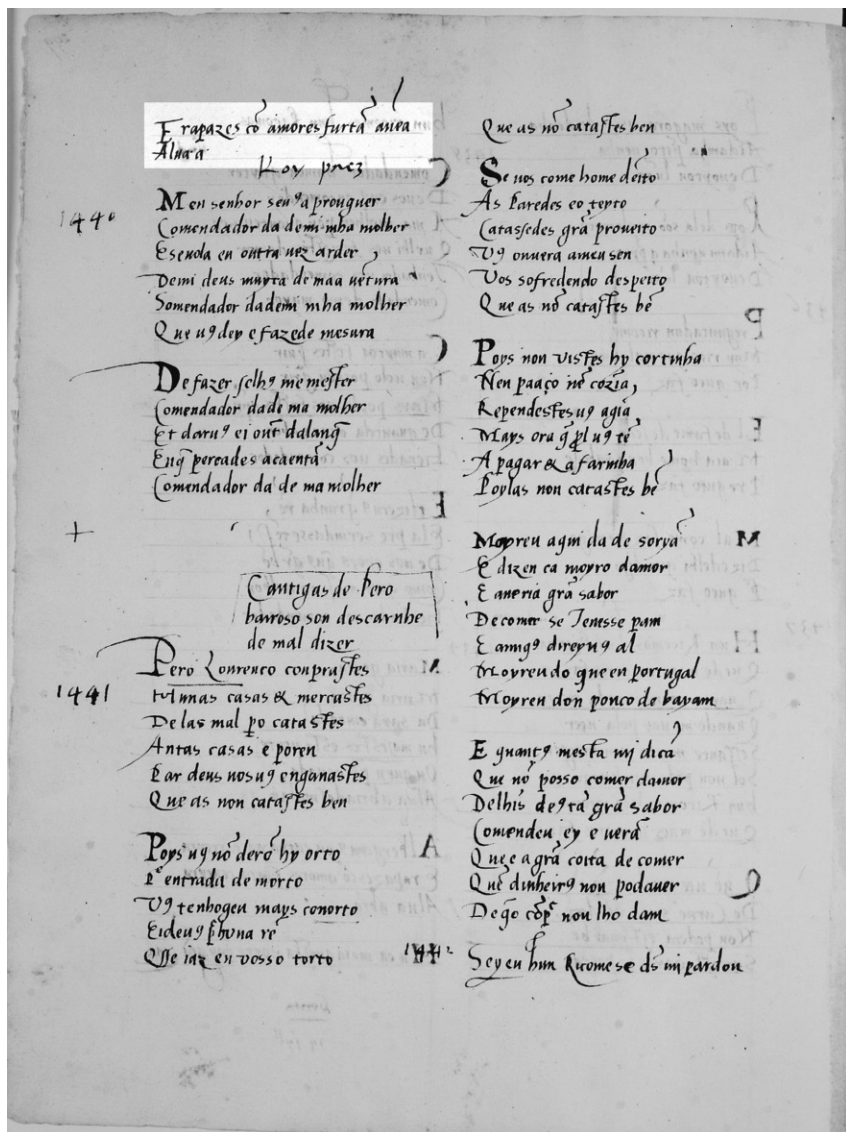 E rapazes cõ amores furtã auea
Alua a
Roy paez
1440
Meu senhor seu9 aprouguer
Comendador dademi mha molher
Eseuola eu outra uez arder
Demi deus muyta de maa uẽtura
Comendador dademi mha molher
Que u9 dey e fazede mesura
De fazer
Comendador dade ma molher
Et daru9 ei out dalanq̃
Comendador da de ma molher
Cantigas de Pero
barroso son descarnho
de mal dizer
1441
Pero Lourenco conprastes
Hunas casas & mercastes
De las mal po catastes
Antas casas e poren
Par deus uos u9 enganastes
Que as non catastes ben
Poys u9 nõ derõ hy orto
entrada de morto
V9 tenhogeu mays conorto
Que iaz en vosso torto
Que as nõ catastes ben
Se uos come home deito
As paredes eo teyto
Catassedes grã proueito
V9 ouuera ameu sen
Vos sofredendo despeito
Que as nõ catastes bẽ
Poys non vistes hy cortinha
Nen paaço nẽ cozĩa
Rependestesu9 agĩa
Mays ora q̃ prol u9 tẽ
A pagar & a farinha
Poylas non catastes bẽ
Moyreu aqui da de soryã
E dizen ca moyro damor
E aueria grã sabor
De comer se Teuesse pam
E amig9 direyu9 al
Moyreu do que en portugal
Moyreu don ponco de bayam
E quant9 mesta mi dicã
Que nõ posso comer damor
Delhis de9 tã grã sabor
Comendeu ey e uerã
Que e a grã coita de comer
Quẽ dinheir9 non podauer
De q̃o cõpr nou lho dam
1442
Seyeu hun Ricomese ds mi pardon